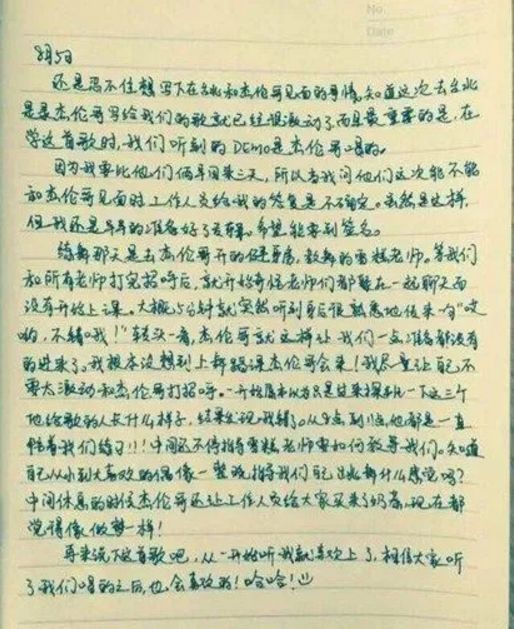 No.
Date
8月5日
还是忍不住想写下在台北和杰伦哥见面的事情,知道这次去台北
是录杰伦哥写给我们的歌就已经很激动了,而且最重要的是,在
学这首歌时,我们听到的DEMO是杰伦哥唱的。
因为我要比他们俩早回来三天,所以当我问他们这次能不能
和杰伦哥见面时工作人员给我的答复是不确定。虽然是这样,
但我还是早早的准备好了专辑。希望能拿到签名。
练舞那天是去杰伦哥开的健身房,教舞的雪糕老师。等我们
和所有老师打完招呼后,就开始奇怪老师们都聚在一起聊天而
没有开始上课。大概5分钟就突然听到身后很熟悉地传来一句“哎
哟,不错哦!”转头一看,杰伦哥就这样让我们一点准备都没有
的进来了。我根本没想到上舞蹈课杰伦哥会来!我尽量让自己不
要太激动和杰伦哥打招呼。一开始原本以为只是过来探班一下这三个
他给歌的人长什么样子,结果发现我错了。从9点到1点,他都是一直
陪着我们练习!!!中间还不停指导雪糕老师要如何教导我们。知道
自己从小到大喜欢的偶像一整晚指导我们自己跳舞什么感觉吗?
中间休息的时候杰伦哥还让工作人员给大家买来了奶茶,现在都
觉得像做梦一样!
再来说下这首歌吧,从一开始听我就喜欢上了,相信大家听
了我们唱的之后,也会喜欢的!哈哈!